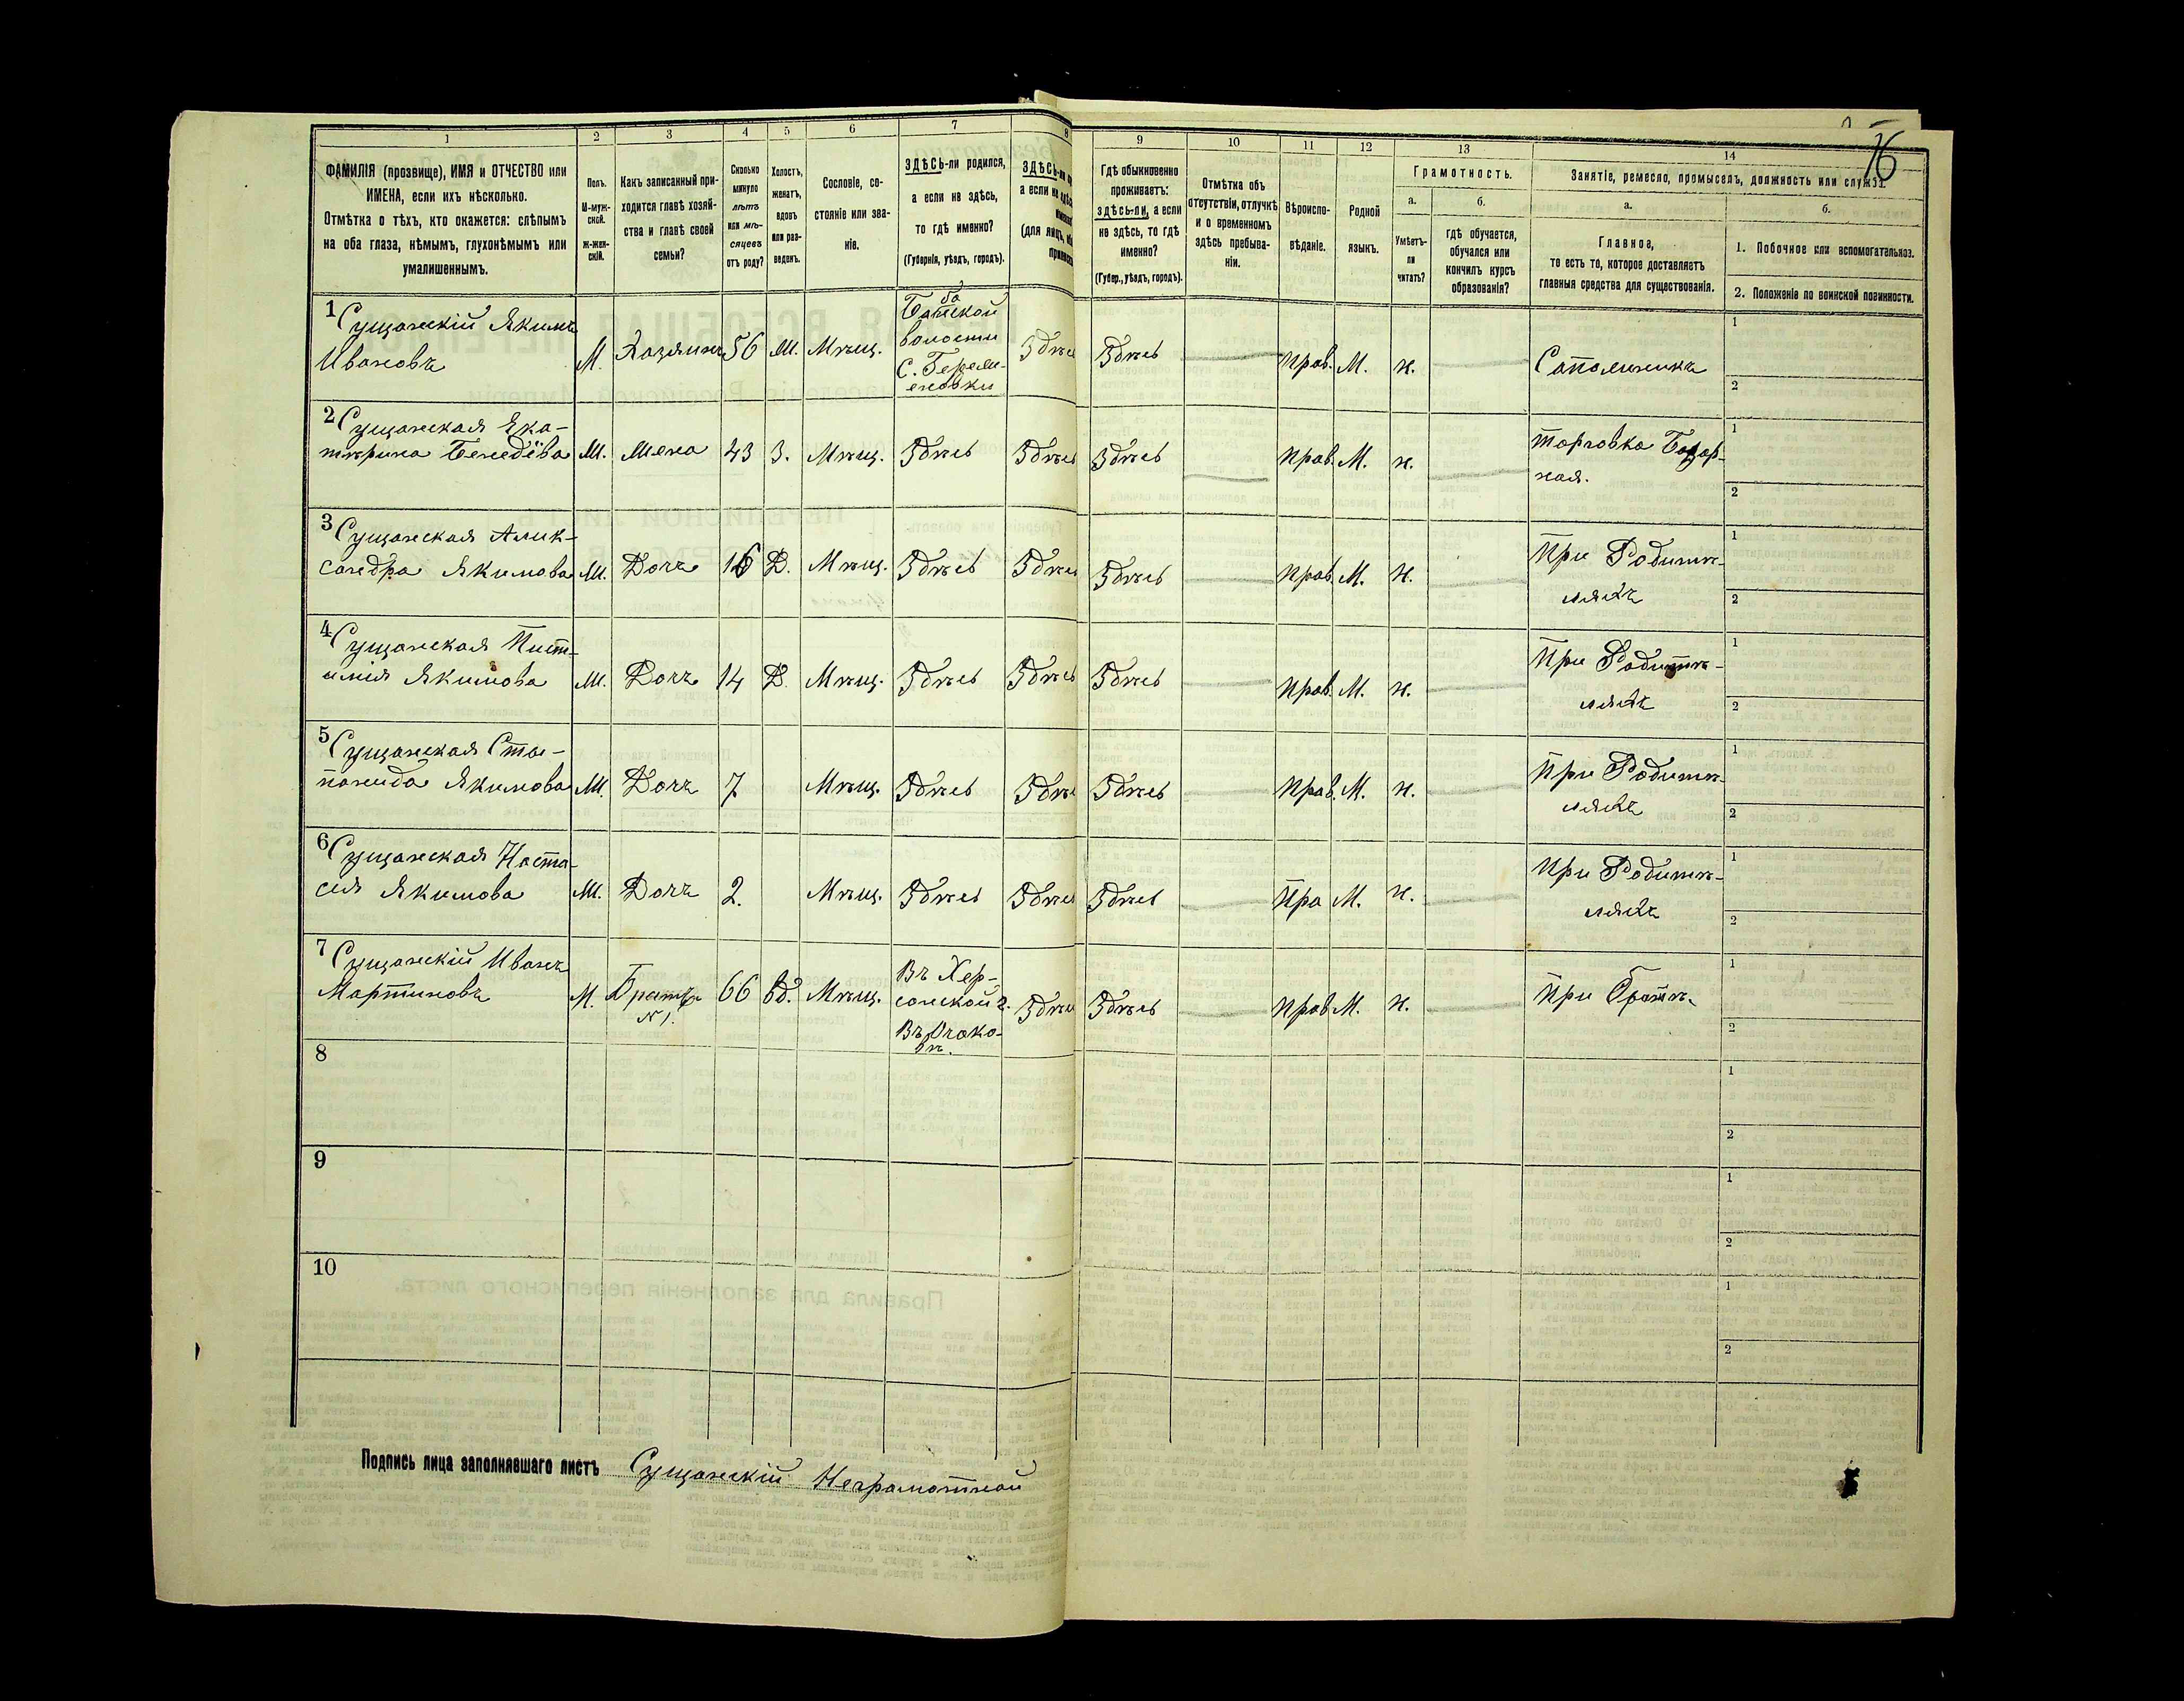 76
1 2 3 4 5 6 7 8 9 10 11 12 13 14
ФАМИЛІЯ (прозвище), ИМЯ и ОТЧЕСТВО или
ИМЕНА, если ихъ нѣсколько.
Отмѣтка о тѣхъ, кто окажется: слѣпымъ
на оба глаза, нѣмымъ, глухонѣмымъ или
умалишеннымъ.
Полъ.
М-муж-
ской.
Ж-жен-
скій.
Какъ записанный при-
ходится главѣ хозяй-
ства и главѣ своей
семьи?
Сколько
минуло
лѣтъ
или мѣ-
сяцевъ
отъ роду?
Холостъ,
женатъ,
вдовъ
или раз-
веденъ.
Сословіе, со-
стояніе или зва-
ніе.
ЗДѢСЬ-ли родился,
а если не здѣсь,
то гдѣ именно?
(Губернія, уѣздъ, городъ).
ЗДѢСЬ-ли
а если не
(для лицъ,
Гдѣ обыкновенно
проживаетъ:
здѣсь-ли, а если
не здѣсь, то гдѣ
именно?
(Губер., уѣздъ, городъ).
Отмѣтка объ
отсутствіи, отлучкѣ
и о временномъ
здѣсь пребыва-
ніи.
Вѣроиспо-
вѣданіе.
Родной
языкъ.
Грамотность.
а.
Умѣетъ-
ли
читать?
б.
гдѣ обучается,
обучался или
кончилъ курсъ
образованія?
Занятіе, ремесло, промыселъ, должность или служба.
а.
Главное,
то есть то, которое доставляетъ
главныя средства для существованія.
б.
1. Побочное или вспомогательное.
2. Положеніе по воинской повинности.
1 Сущанскій Якимъ
Ивановъ
М. Хазяинъ 56 Ж. Мѣщ.
волости
Здѣсь Здѣсь прав. М. н.
2 Сущанская Ека-
тѣрина
Ж. Жена 43 З. Мѣщ. Здѣсь Здѣсь Здѣсь прав. М. н. торговка Базар-
ная.
3 Сущанская Алек-
сандра Якимова Ж. Дочъ 16 Д. Мѣщ. Здѣсь Здѣсь Здѣсь прав. М. н. При Родитѣ-
ляхъ
4 Сущанская Пист-
имія Якимова Ж. Дочъ 14 Д. Мѣщ. Здѣсь Здѣсь Здѣсь прав. М. н. При Родитѣ-
ляхъ
5 Сущанская Сте-
панида Якимова Ж. Дочъ 7 Мѣщ. Здѣсь Здѣсь Здѣсь прав. М. н. При Родитѣ-
ляхъ
6 Сущанская Наста-
сия Якимова Ж. Дочъ 2. Мѣщ. Здѣсь Здѣсь Здѣсь Пра М. н. При Родитѣ-
ляхъ
7 Сущанскій Иванъ
Мартиновъ
М. Братъ
№ 1.
66 вд. Мѣщ. Въ Хер-
сонской г.
Въ Очако-
вѣ.
Здѣсь Здѣсь прав. М. н. При братѣ.
8
9
10
Подпись лица заполнявшаго листъ Сущанскій Неграмотной